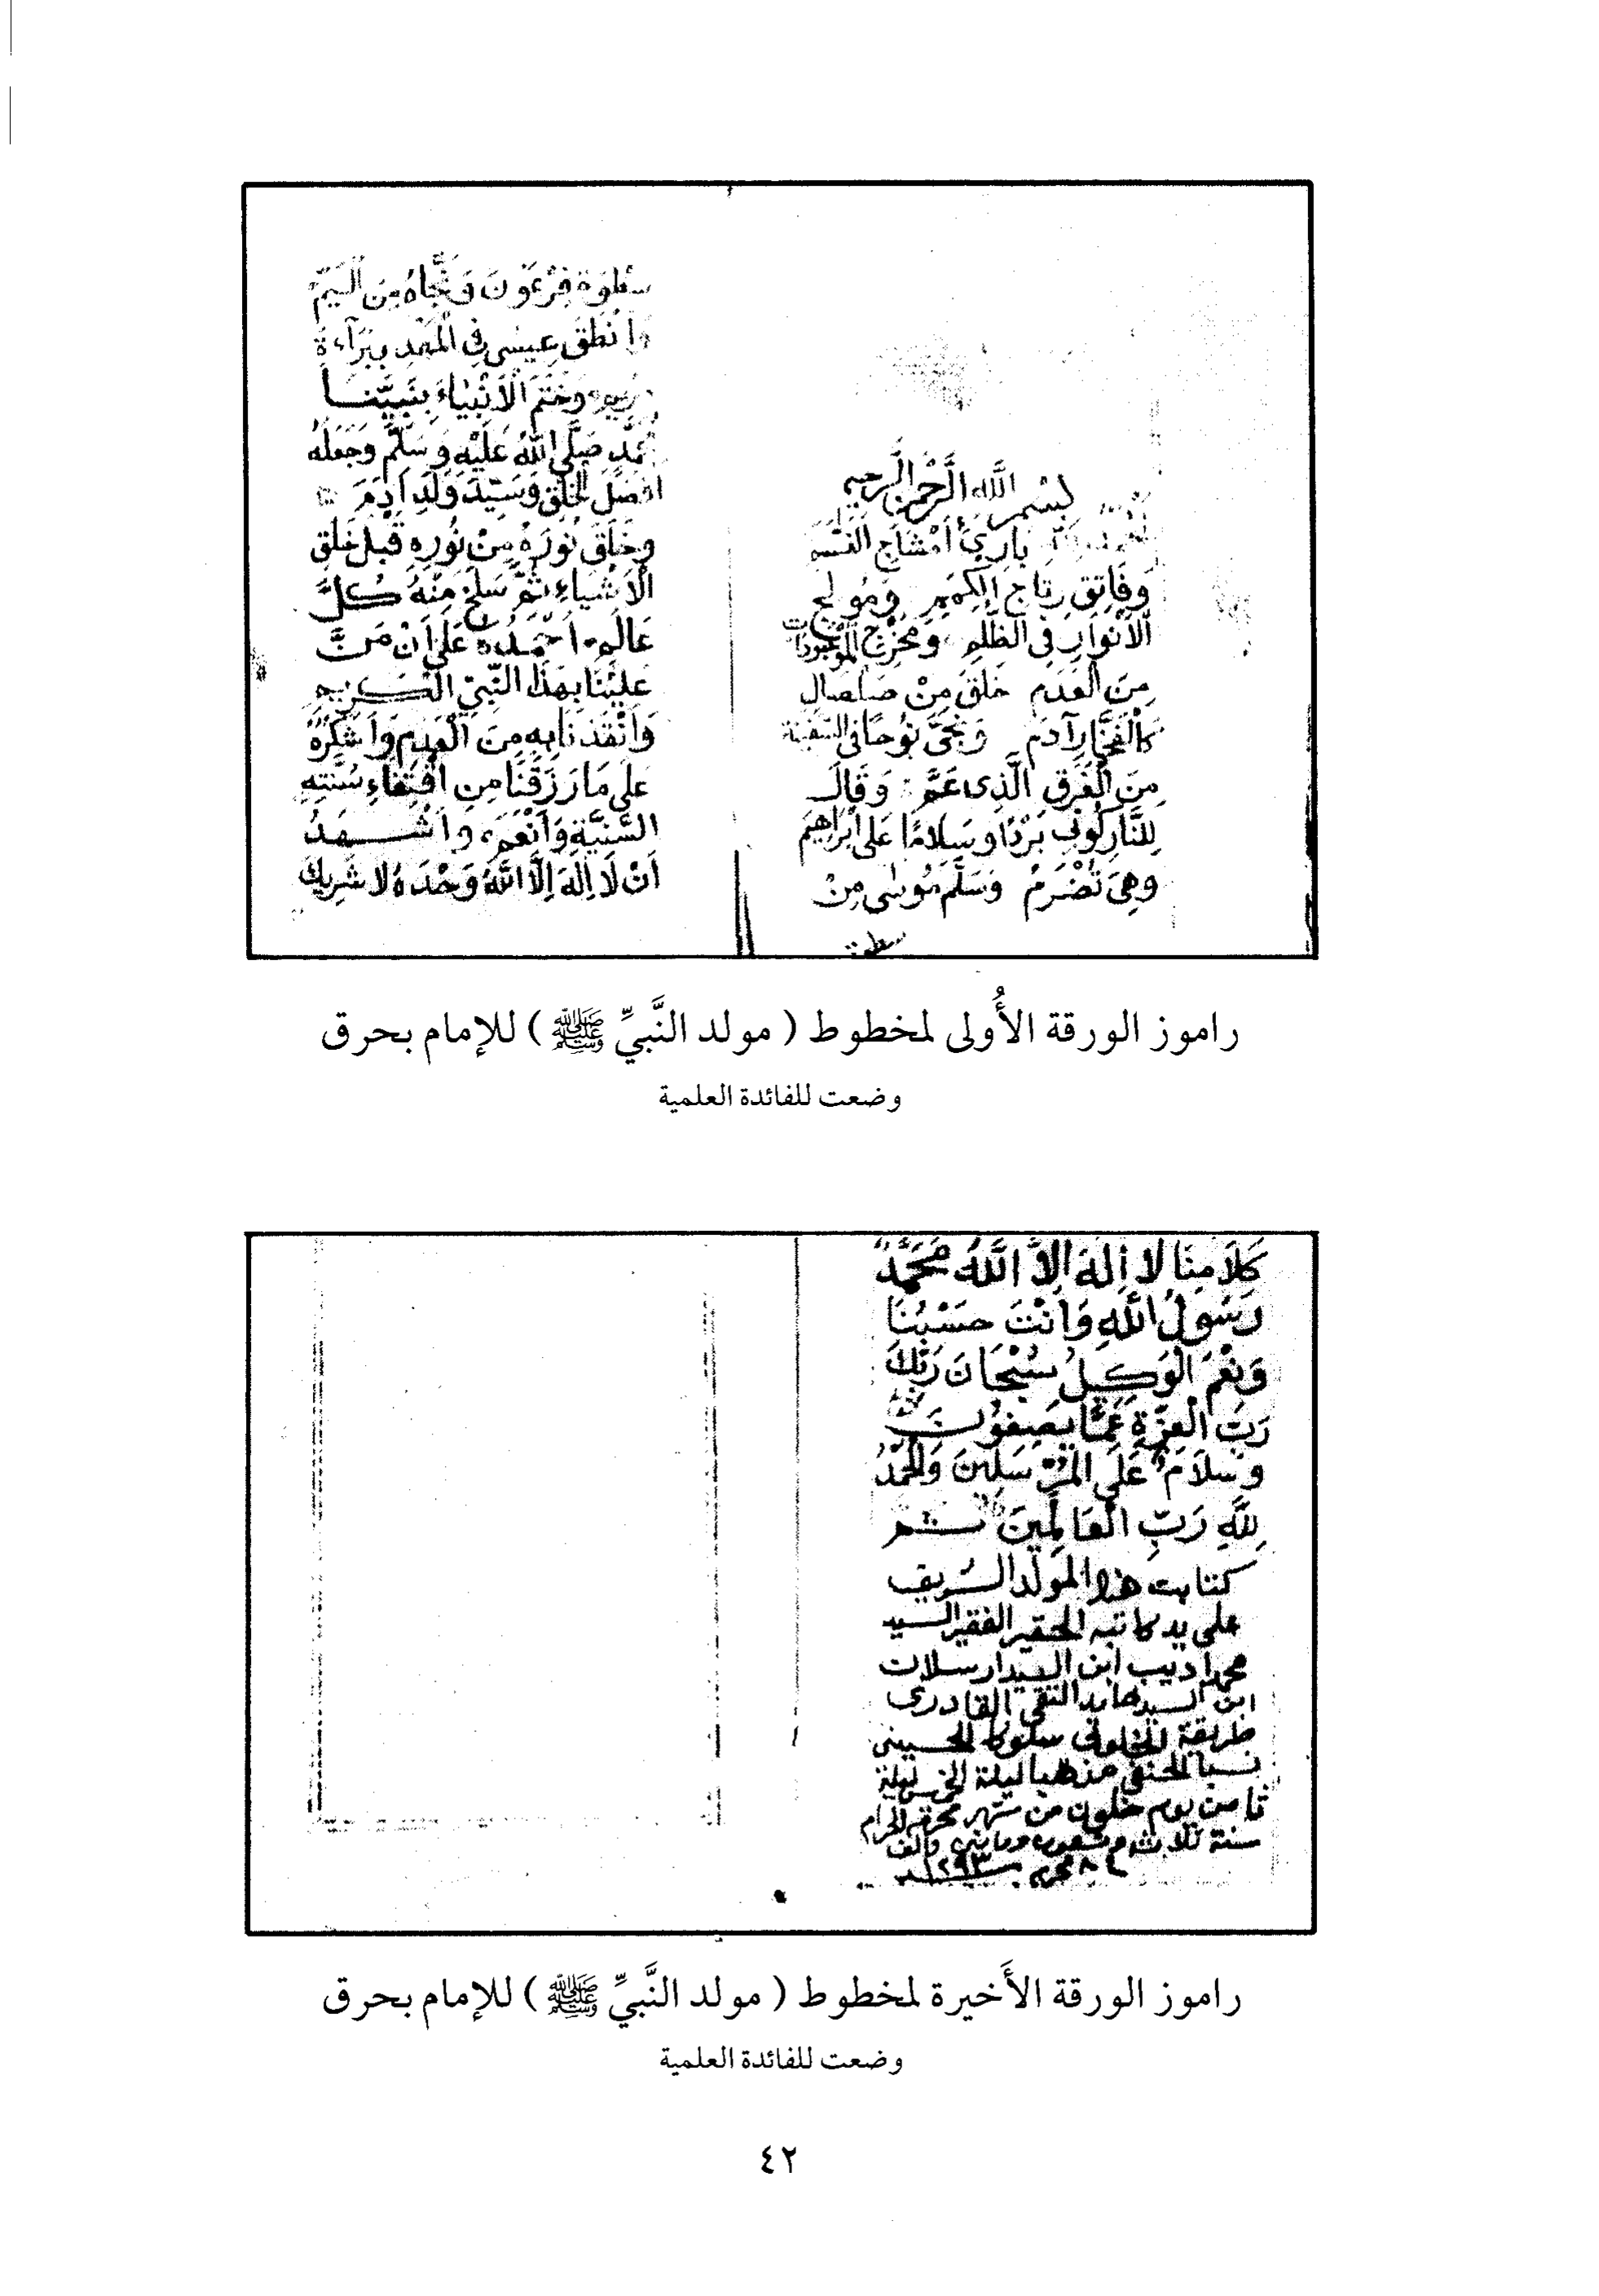 بسم الله الرحمن الرحيم
بارئ أمشاج النسم
وفاتق رتاج الكمم ومولج
الأنوار في الظلم ومخرج الموجودات
من العدم خلق من صلصال
كالفخار آدم ونجى نوحا في السفينة
من الغرق الذي عم وقال
للنار كوني بردا وسلاما على إبراهيم
وهي تضرم وسلم موسى من
سطوة
سطوة فرعون ونجاه من اليم
وأنطق عيسى في المهد ببراءة
وختم الأنبياء بنبينا
محمد صلى الله عليه وسلم وجعله
افضل الخلق وسيد ولد ادم
وخلق نوره من نوره قبل خلق
الأشياء ثم سلخ منه كل
عالم احمده على ان من
علينا بهذا النبي الكريم
وانقذنا به من العدم واشكره
على ما رزقنا من اقتفاء سنته
السنية وانعم واشهد
ان لا اله الا الله وحده لا شريك
راموز الورقة الأُولى لمخطوط ( مولد النَّبيِّ ﷺ ) للإمام بحرق
وضعت للفائدة العلمية
كلامنا لا اله الا الله محمد
رسول الله وانت حسبنا
ونعم الوكيل سبحان ربك
رب العزة عما يصفون
وسلام على المرسلين والحمد
لله رب العالمين تم
كتابت هذا المولد الشريف
على يد كاتبه الحقير الفقير السيد
محمد اديب ابن السيد ارسلان
ابن السيد حامد التقي القادري
طريقة الخلوتي سلوكا الحسيني
نسبا الحنفي مذهبا ليلة ليلة
ثامن يوم خلون من شهر محرم الحرام
سنة ثلاث وتسعون ومايتين والف
٨ محرم سنة ١٢٩٣
راموز الورقة الأَخيرة لمخطوط ( مولد النَّبيِّ ﷺ ) للإمام بحرق
وضعت للفائدة العلمية
٤٢